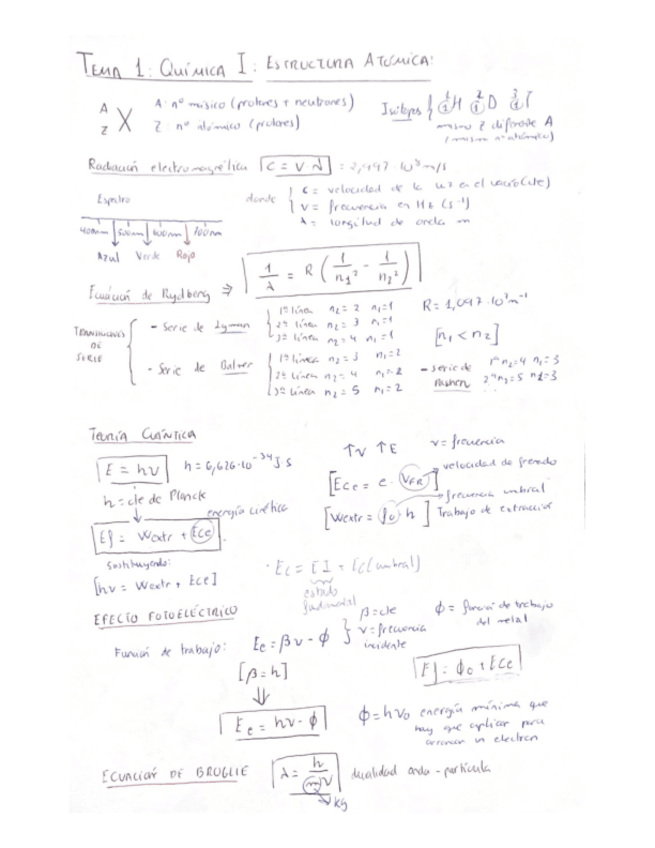 TEMA 1: QUÍMICA I: ESTRUCTURA ATÓMICA:
A
Z X
A: nº másico (protones + neutrones)
Z: nº atómico (protones)
Isótopos { ¹₁H ²₁D ³₁T
mismo Z diferente A
(mismo nº atómico)
Radiación electromagnética C = ν·λ = 2,997·10⁸ m/s
donde { C = velocidad de la luz en el vacío (cte)
ν = frecuencia en Hz (s⁻¹)
λ = longitud de onda m
Espectro
400nm 500nm 600nm 700nm
Azul Verde Rojo
Ecuación de Rydberg ⇒ 1/λ = R (1/n₁² - 1/n₂²)
R = 1,097·10⁷m⁻¹
[n₁ < n₂]
TRANSICIONES DE SERIE
- Serie de Lyman { 1ª línea n₂ = 2 n₁ = 1
2ª línea n₂ = 3 n₁ = 1
3ª línea n₂ = 4 n₁ = 1
- Serie de Balmer { 1ª línea n₂ = 3 n₁ = 2
2ª línea n₂ = 4 n₁ = 2
3ª línea n₂ = 5 n₁ = 2
- serie de Pashen 1ª n₂=4 n₁=3
2ª n₂=5 n₁=3
TEORÍA CUÁNTICA
E = hν h = 6,626·10⁻³⁴ J·S
h = cte de Planck
energía cinética
Ef = Wextr + Ece
Sustituyendo:
[hν = Wextr + Ece]
↑ν ↑E ν = frecuencia
velocidad de frenado
[Ece = e · VFR]
frecuencia umbral
[Wextr = f₀ h] Trabajo de extracción
· Ec = EI + Ec(umbral)
estado
fundamental
EFECTO FOTOELÉCTRICO
Función de trabajo: Ee = βν - ϕ } β = cte
ν = frecuencia
incidente
ϕ = función de trabajo
del metal
[β = h]
Ef = ϕ₀ + Ece
⇓
Ee = hν - ϕ
ϕ = hν₀ energía mínima que
hay que aplicar para
arrancar un electron
ECUACIÓN DE BROGLIE λ = h/mv dualidad onda - partícula
Kg